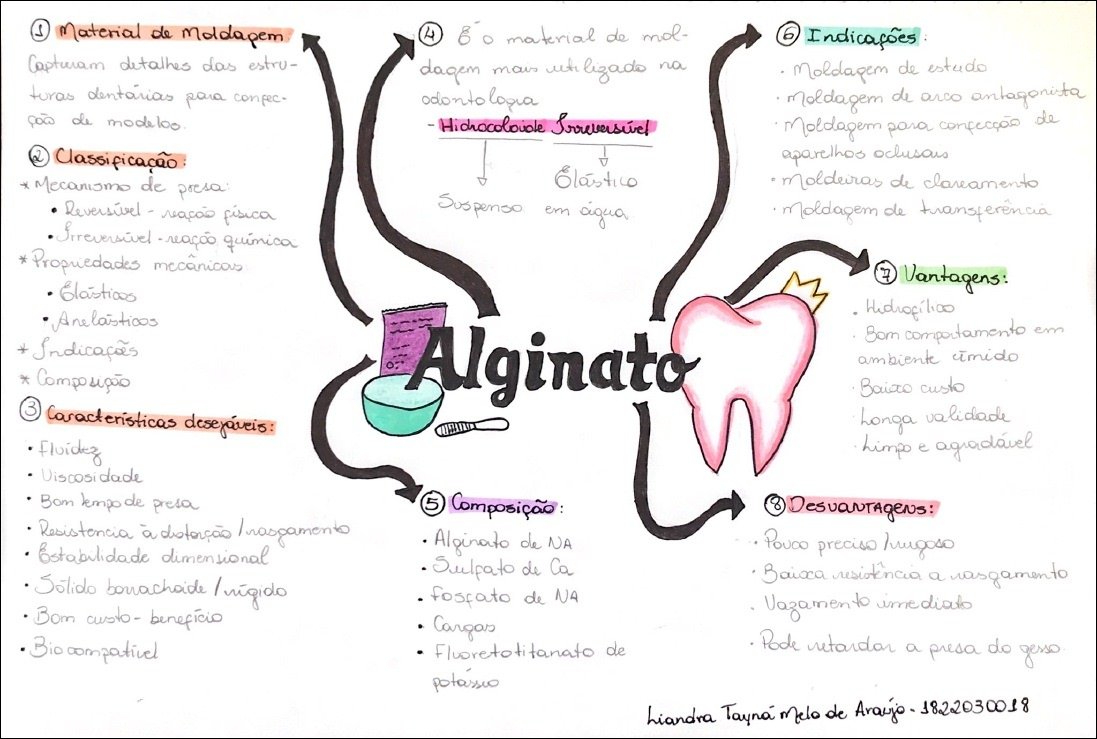 1 Material de Moldagem
Capturam detalhes das estru-
turas dentárias para confec-
ção de modelos.
2 Classificação:
* Mecanismo de presa:
• Reversível - reação física
• Irreversível - reação química
* Propriedades mecânicas
• Elásticos
• Anelásticos
* Indicações
* Composição
3 Características desejáveis:
• Fluidez
• Viscosidade
• Bom tempo de presa
• Resistencia à distorção / rasgamento
• Estabilidade dimensional
• Sólido borrachoide / rígido
• Bom custo-benefício
• Biocompatível
4 É o material de mol-
dagem mais utilizado na
odontologia
- Hidrocoloide Irreversível
Elástico
Suspenso em água
Alginato
5 Composição:
• Alginato de NA
• Sulfato de Ca
• Fosfato de NA
• Cargas
• Fluoretotitanato de
potássio
6 Indicações:
• Moldagem de estudo
• Moldagem de arco antagonista
• Moldagem para confecção de
aparelhos oclusais
• Moldeiras de clareamento
• Moldagem de transferência
7 Vantagens:
• Hidrofílico
• Bom comportamento em
ambiente úmido
• Baixo custo
• Longa validade
• Limpo e agradável
8 Desvantagens:
• Pouco preciso / rugoso
• Baixa resistência a rasgamento
• Vazamento imediato
• Pode retardar a presa do gesso.
Liandra Tayná Melo de Araújo - 1822030018